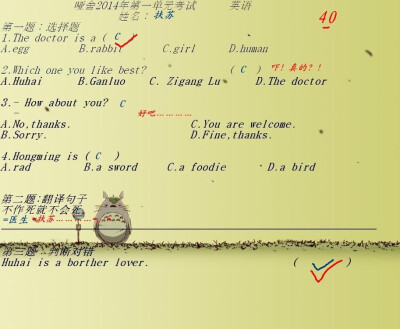 哑舍2014年第一单元考试 英语
姓名：扶苏
40
第一题：选择题
1.The doctor is a ( C
A.egg B.rabbit C.girl D.human
2.Which one you like best? ( C ) 吓！真的？！
A.Huhai B.Ganluo C. Zigang Lu D.The doctor
3.- How about you? C
- 好吧…………
A.No,thanks. C.You are welcome.
B.Sorry. D.Fine,thanks.
4.Hongming is ( C )
A.rad B.a sword C.a foodie D.a bird
第二题:翻译句子
不作死就不会死
=医生+扶苏……………
第三题：判断对错
Huhai is a borther lover. ( )